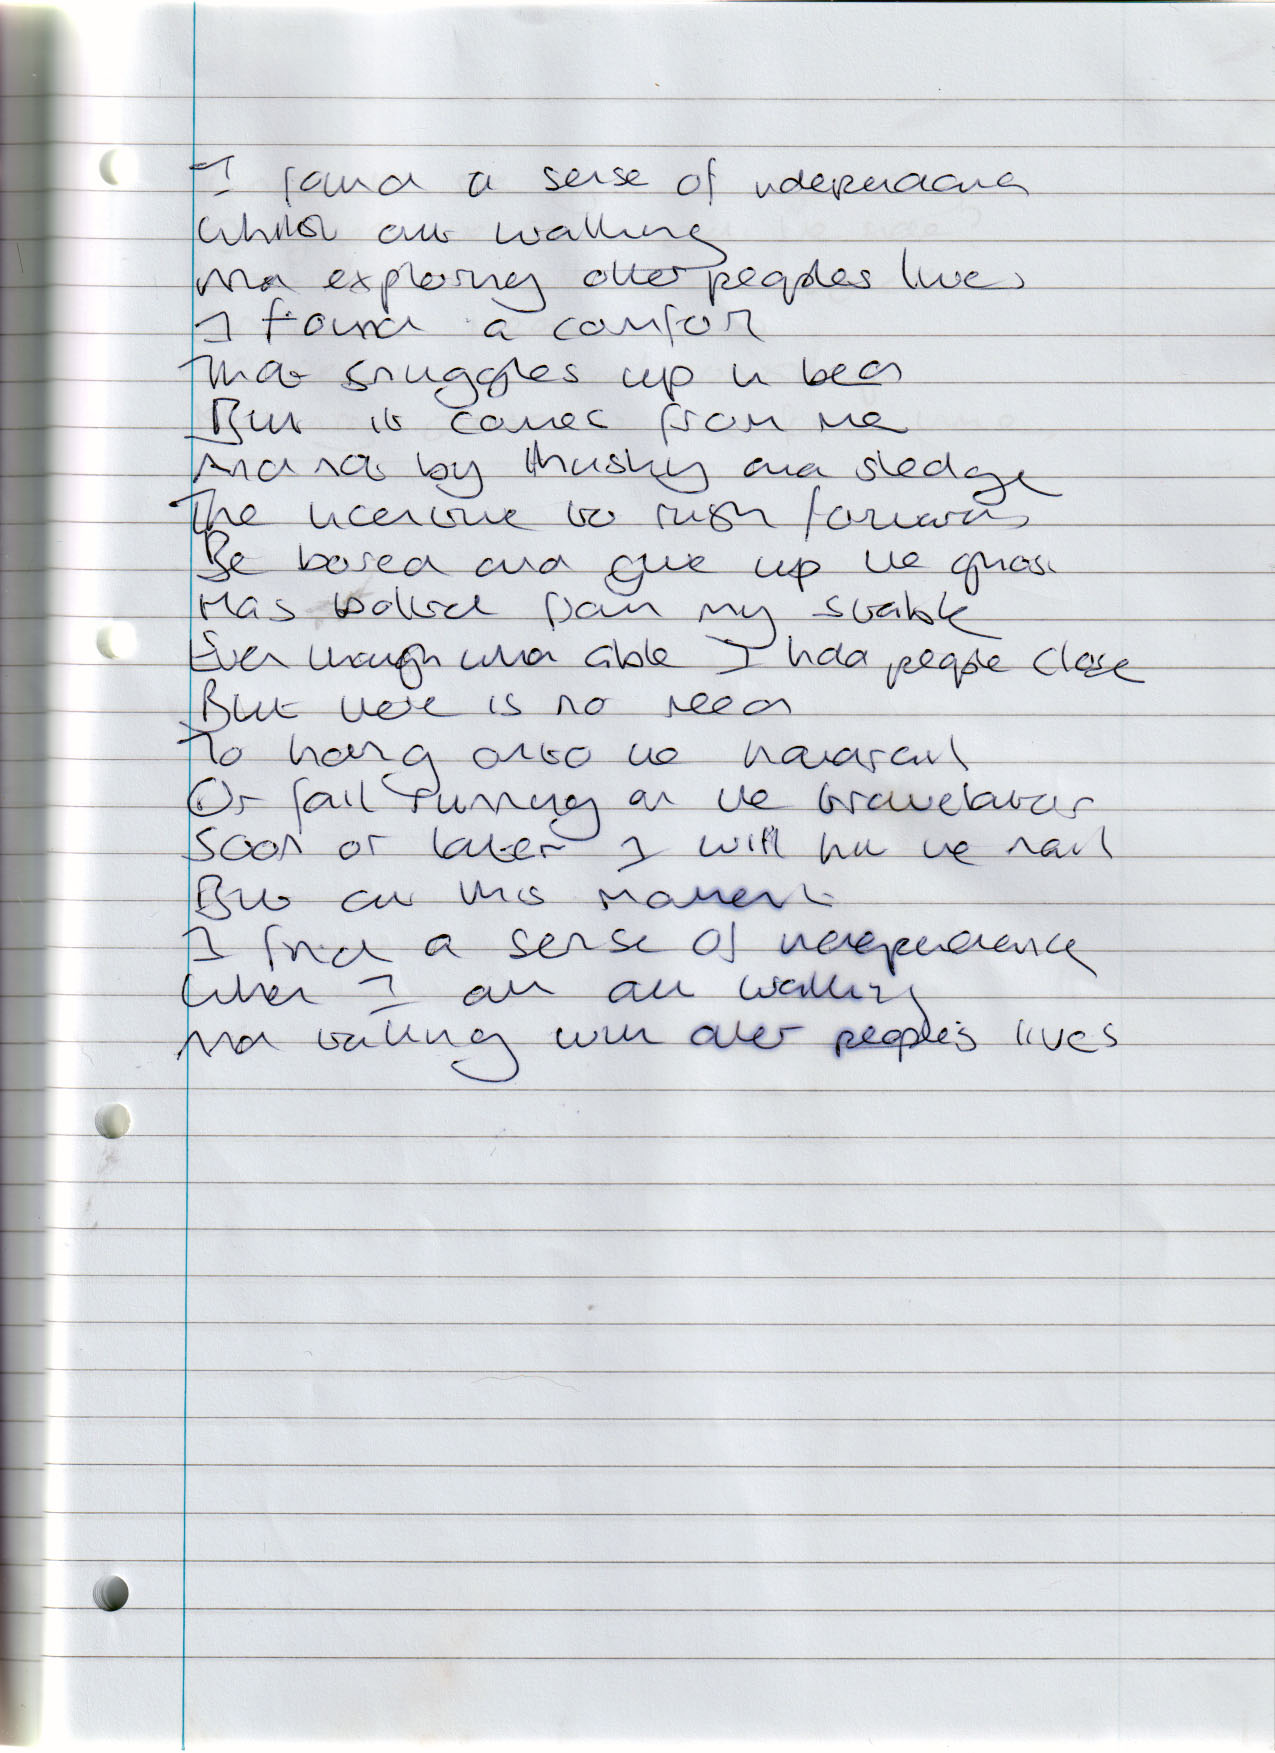 I found a sense of independance
Whilst out walking
And exploring other peoples lives
I found a comfort
That snuggles up in bed
But it comes from me
And not by husky and sledge
The incentive to rush forwards
Be bored and give up the ghost
Has bolted from my stable
Even though when able I hold people close
But there is no need
To hang onto the handrail
Or fall running on the travelator
Soon or later I will hit the nail
But at this moment
I find a sense of independence
When I am out walking
And talking with other people's lives